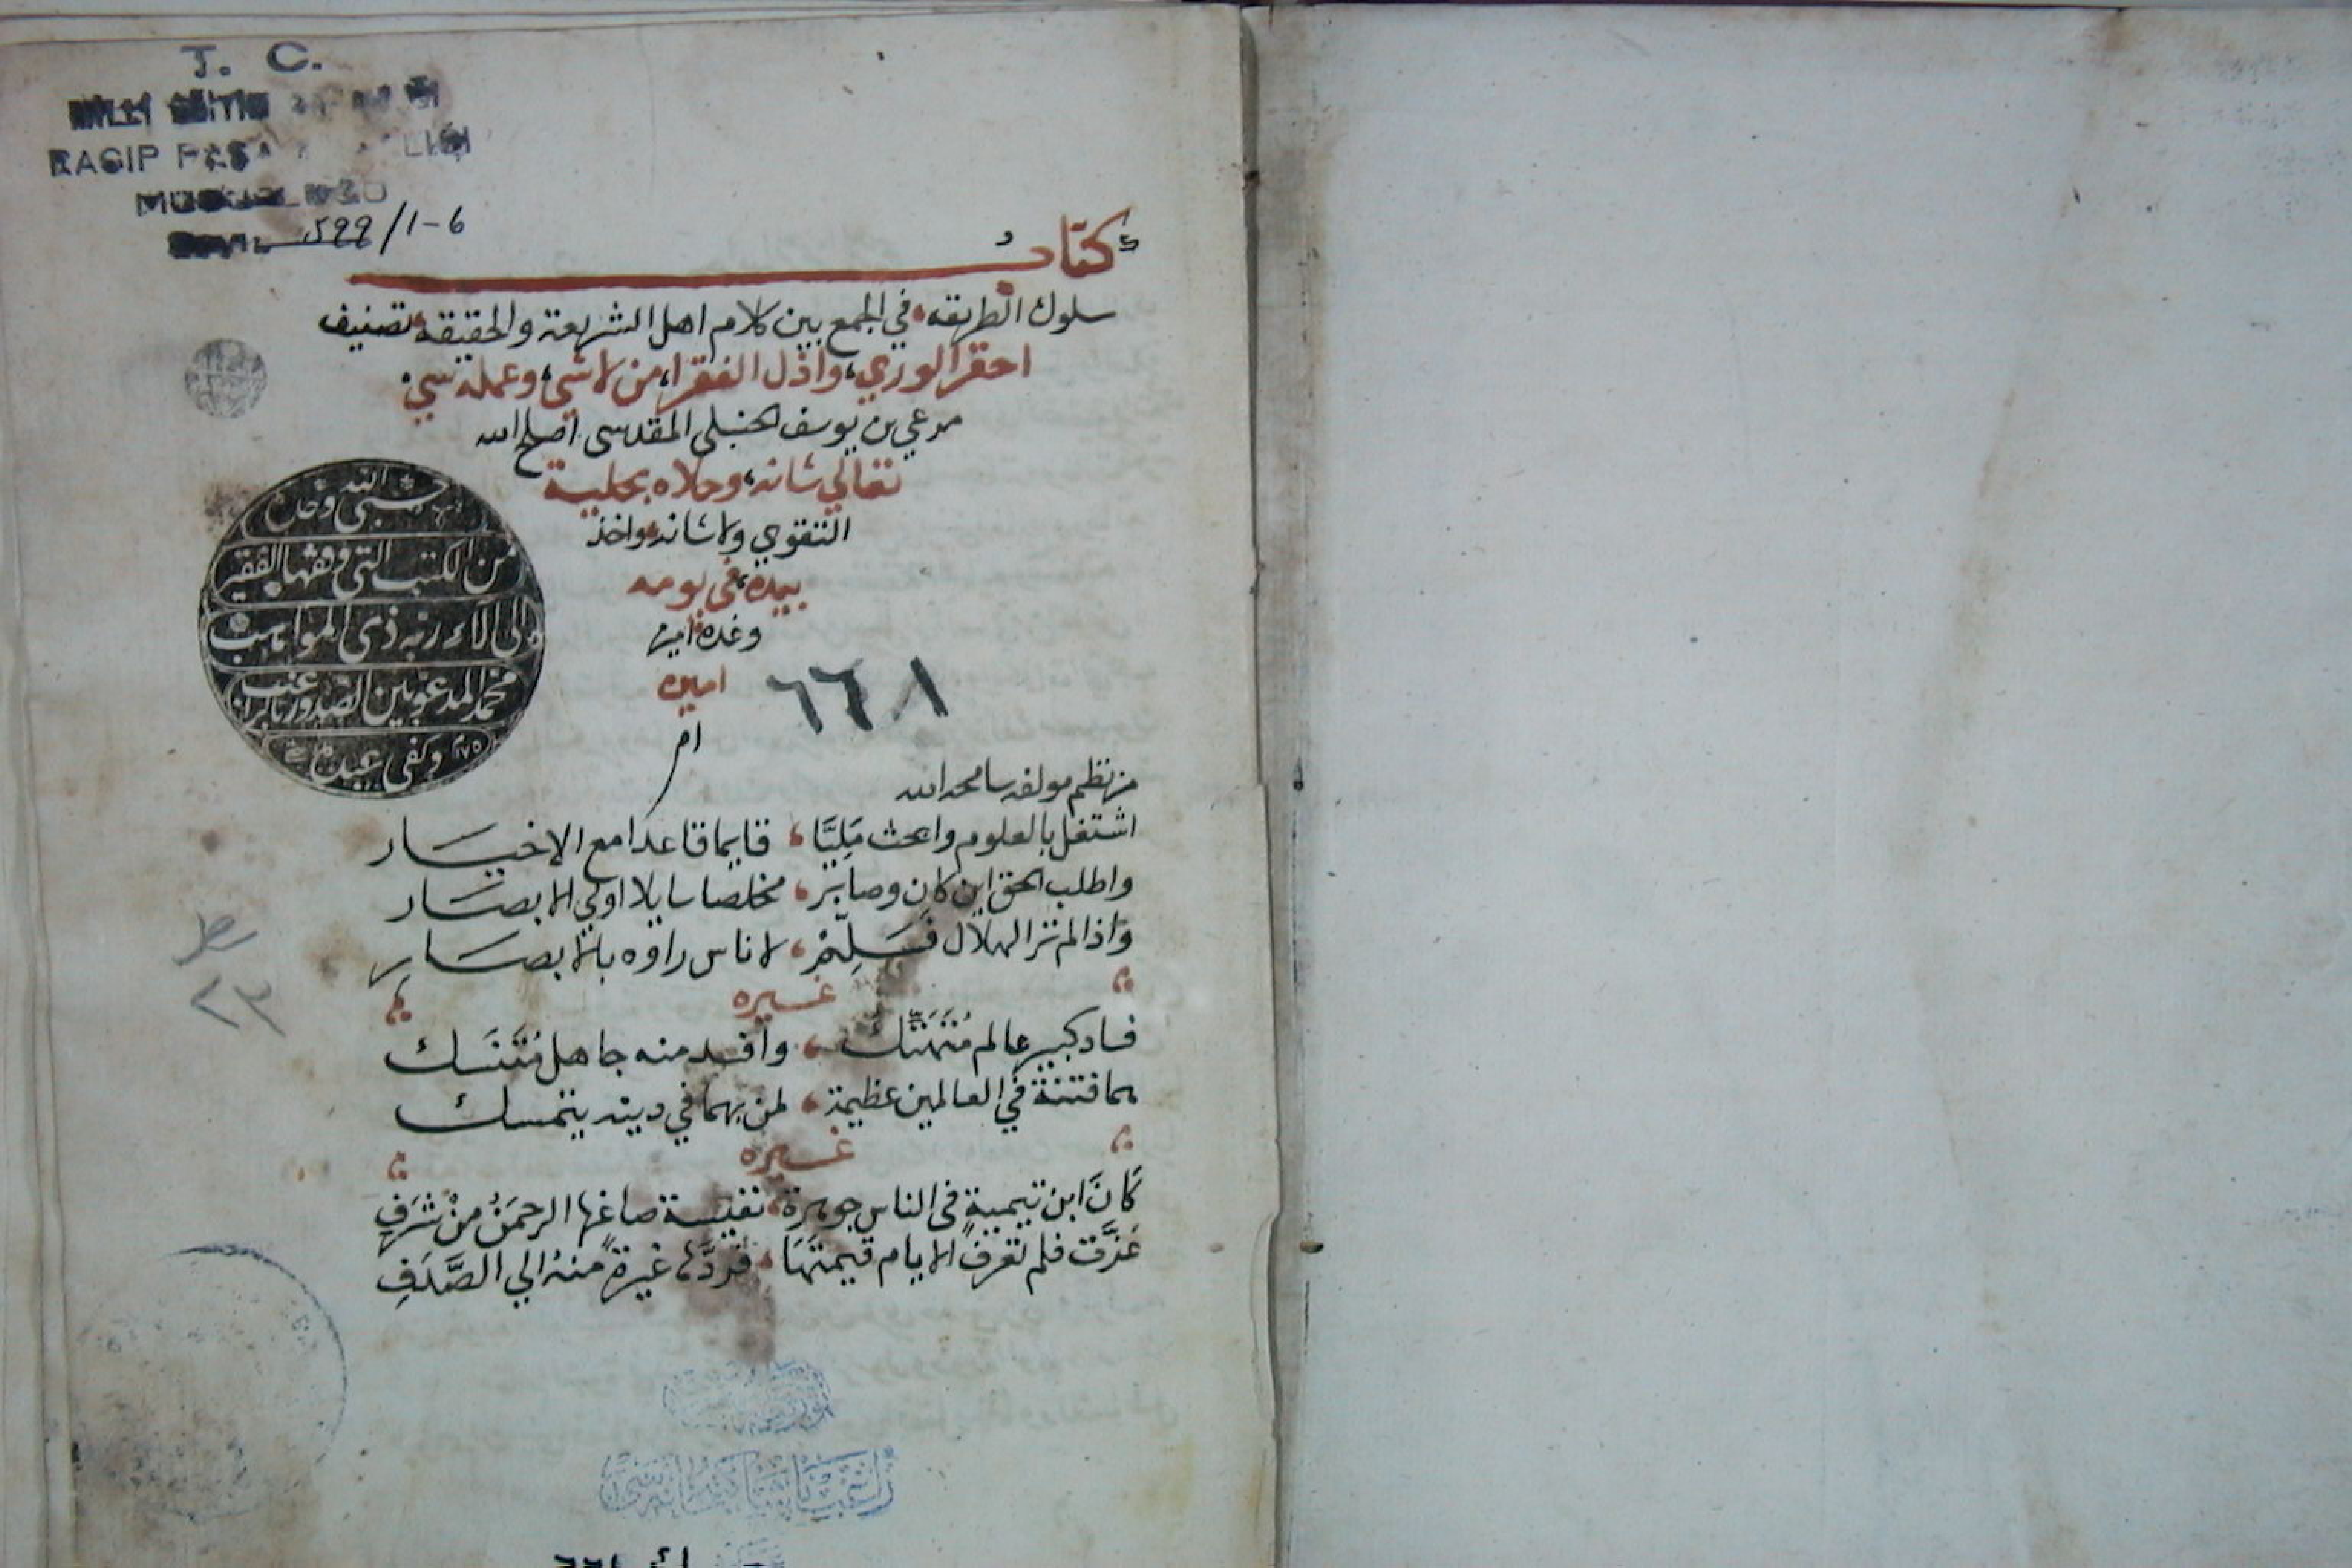 T. C.
RAGIP PAŞA
599/1-6
كتاب
سلوك الطريقه في الجمع بين كلام اهل الشريعة والحقيقه تصنيف
احقر الوري، واذل الفقرا، من لا شي، وعمله سيئ
مرعي بن يوسف الحنبلي المقدسي اصلح الله
تعالي شانه، وحلاه بحلية
التقوي ولا شانه واخذ
بيده، في يومه
وغده امين
امين
ام
٦٦٨١
حسبي الله وحده
من الكتب التي وقفها الفقير
الى آلاء ربه ذي المواهب
محمد المدعو بين الصدور بالراغب
وكفى عبده
من نظم مولفه سامحه الله
اشتغل بالعلوم وابحث مَلِيًّا، قايما قاعدا مع الاخيــار
واطلب الحق اين كان وصابر، مخلصا سايلا اولي الابصــار
واذا لم تر الهلال فَسَلِّمْ، لاناس راوه بالابصــارِ
غيره
فساد كبير عالم مُتَهَتِّك، وافسد منه جاهل مُتَنَسك
هما فتنة في العالمين عظيمة، لمن بهما في دينه يتمسك
غيره
كَانَ ابن تيميةٍ في الناس جوهرة، نفيسة صاغها الرحمَنُ مِنْ شَرَفِ
عَزَّت فلم تعرف الايام قيمتَهَا، فردَّها غيرةً منهُ الي الصَّدَفِ
سطر
٢٣